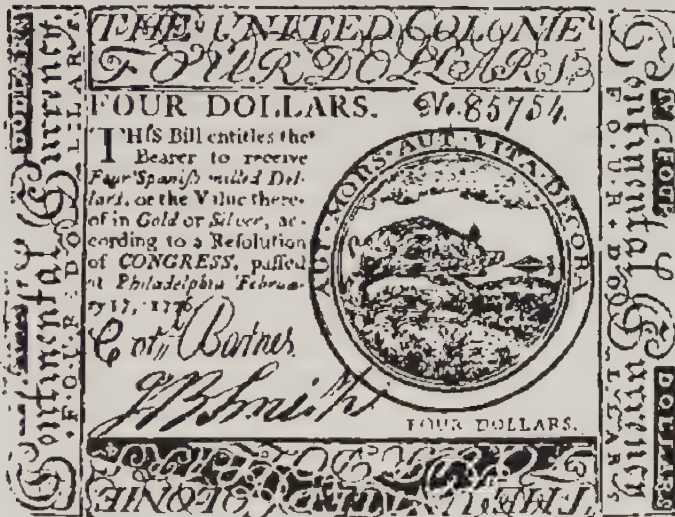 THE UNITED COLONIE
FOUR DOLLARS
FOUR DOLLARS. No. 85754
THIS Bill entitles the
Bearer to receive
Four Spaniſh milled Dol-
lars, or the Value there-
of in Gold or Silver, ac-
cording to a Reſolution
of CONGRESS, paſſed
at Philadelphia Februa-
ry 17, 1776.
AUT MORS AUT VITA DECORA
Barnes
JB Smith
FOUR DOLLARS.
Continental Currency
FOUR DOLLARS
DOLLARS
Continental Currency
FOUR DOLLARS
FOUR
DOLLARS
THE UNITED COLONIE